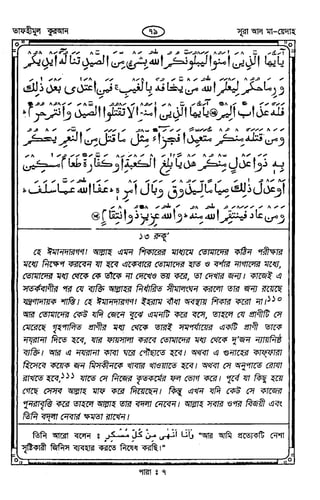 তাফহীমুল কুরআন ৭৯ সূরা আল মা-য়েদাহ
يٰٓاَيُّهَا الَّذِيْنَ اٰمَنُوْا لَيَبْلُوَنَّكُمُ اللّٰهُ بِشَىْءٍ مِّنَ الصَّيْدِ تَنَالُهٗٓ اَيْدِيْكُمْ
وَرِمَاحُكُمْ لِيَعْلَمَ اللّٰهُ مَنْ يَّخَافُهٗ بِالْغَيْبِ ۚ فَمَنِ اعْتَدٰى بَعْدَ ذٰلِكَ
فَلَهٗ عَذَابٌ اَلِيْمٌ يٰٓاَيُّهَا الَّذِيْنَ اٰمَنُوْا لَا تَقْتُلُوا الصَّيْدَ وَاَنْتُمْ حُرُمٌ ؕ
وَمَنْ قَتَلَهٗ مِنْكُمْ مُّتَعَمِّدًا فَجَزَآءٌ مِّثْلُ مَا قَتَلَ مِنَ النَّعَمِ يَحْكُمُ
بِهٖ ذَوَا عَدْلٍ مِّنْكُمْ هَدْيًۢا بٰلِغَ الْكَعْبَةِ اَوْ كَفَّارَةٌ طَعَامُ مَسٰكِيْنَ
اَوْ عَدْلُ ذٰلِكَ صِيَامًا لِّيَذُوْقَ وَبَالَ اَمْرِهٖ ؕ عَفَا اللّٰهُ عَمَّا سَلَفَ ؕ
وَمَنْ عَادَ فَيَنْتَقِمُ اللّٰهُ مِنْهُ ؕ وَاللّٰهُ عَزِيْزٌ ذُو انْتِقَامٍ
১৩ রুকূ'
হে ঈমানদারগণ! আল্লাহ এমন শিকারের মাধ্যমে তোমাদের কঠিন পরীক্ষার
মধ্যে নিক্ষেপ করবেন যা হবে একেবারে তোমাদের হাত ও বর্শার নাগালের মধ্যে,
তোমাদের মধ্য থেকে কে তাঁকে না দেখেও ভয় করে, তা দেখার জন্য। কাজেই এ
সতর্কবাণীর পর যে ব্যক্তি আল্লাহর নির্ধারিত সীমালংঘন করলো তার জন্য রয়েছে
যন্ত্রণাদায়ক শাস্তি। হে ঈমানদারগণ! ইহরাম বাঁধা অবস্থায় শিকার করো না।১১০
আর তোমাদের কেউ যদি জেনে বুঝে এমনটি করে বসে, তাহলে যে প্রাণীটি সে
মেরেছে গৃহপালিত প্রাণীর মধ্য থেকে তারই সমপর্যায়ের একটি প্রাণী তাকে
নযরানা দিতে হবে, যার ফায়সালা করবে তোমাদের মধ্য থেকে দু'জন ন্যায়নিষ্ঠ
ব্যক্তি। আর এ নযরানা কাবা ঘরে পৌঁছাতে হবে। অথবা এ গুনাহের কাফ্‌ফারা
হিসেবে কয়েক জন মিসকীনকে খাবার খাওয়াতে হবে। অথবা সে অনুপাতে রোযা
রাখতে হবে,১১১ যাতে সে নিজের কৃতকর্মের ফল ভোগ করে। পূর্বে যা কিছু হয়ে
গেছে সেসব আল্লাহ মাফ করে দিয়েছেন। কিন্তু এখন যদি কেউ সে কাজের
পুনরাবৃত্তি করে তাহলে আল্লাহ তার বদলা নেবেন। আল্লাহ সবার ওপর বিজয়ী এবং
তিনি বদলা নেবার ক্ষমতা রাখেন।
তিনি আরো বলেন ঃ وَاَنَا اَنْهٰى عَنْ كُلِّ مُسْكِرٍ "আর আমি প্রত্যেকটি নেশা
সৃষ্টিকারী জিনিস ব্যবহার করতে নিষেধ করছি।"
পারা ঃ ৭